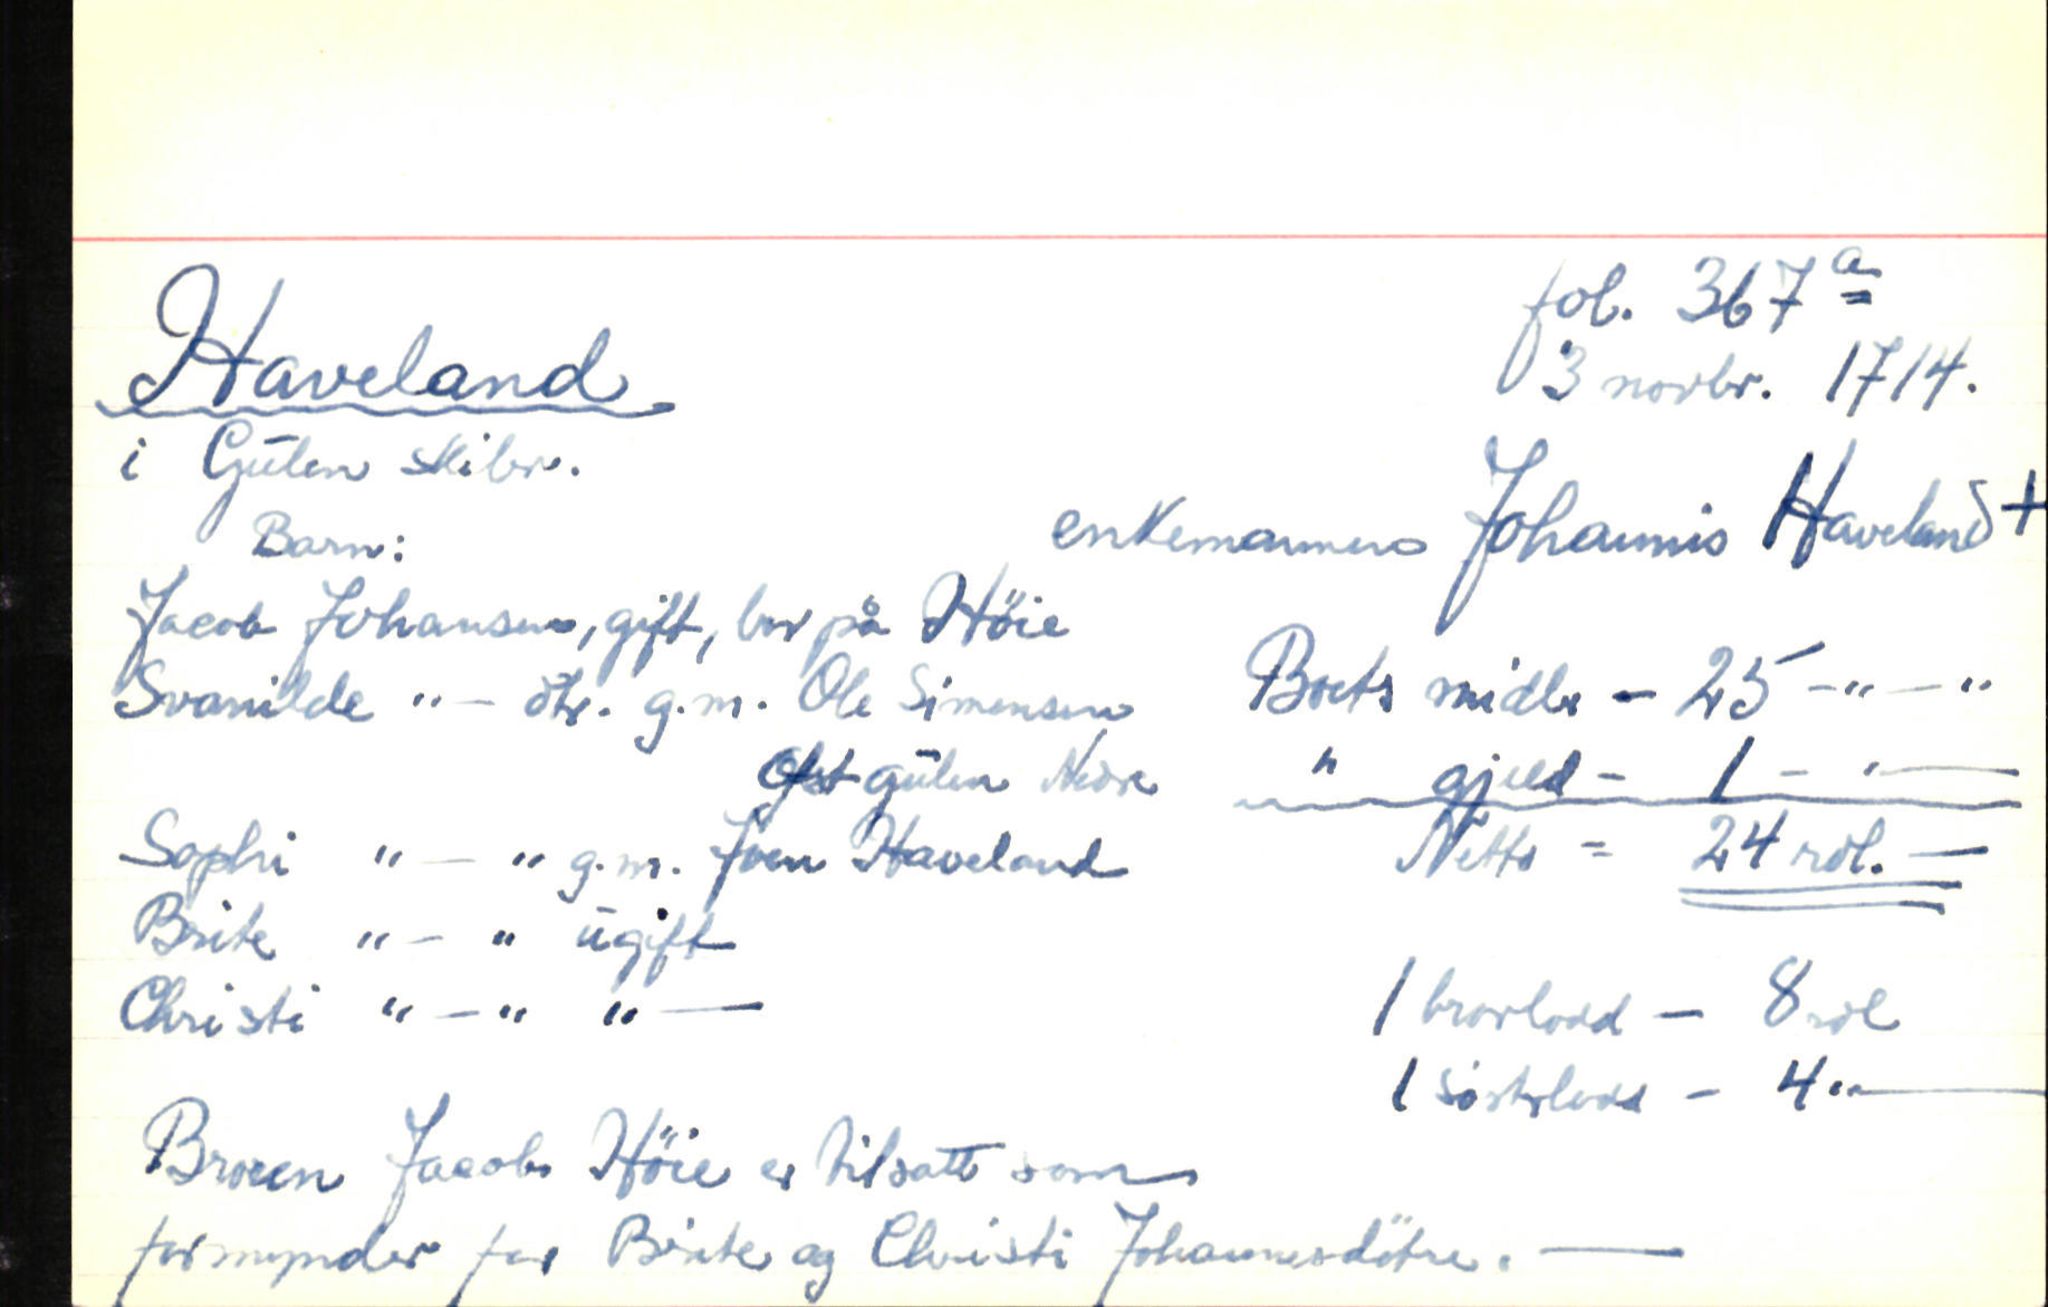 fol. 367 a
Haveland
3 novbr. 1714.
i Gūlen skibr.
enkemannen Johannis Haveland +
Barn:
Jacob Johansen, gift, bor på Höie
Svanilde "— dtr. g.m. Ole Simensen
Boets midler — 25 — " — "
Gūlen Nedre
" gjeld — 1 — " —
Sophi " — " g.m. Joen Haveland
Netto = 24 rdl. —
Brite " — " ūgift
Christi " — " " —
1 brorlodd — 8 rdl
1 søsterlodd — 4 " —
Broren Jacob Höie er tilsatt som
formynder for Brite og Christi Johannesdötre. —